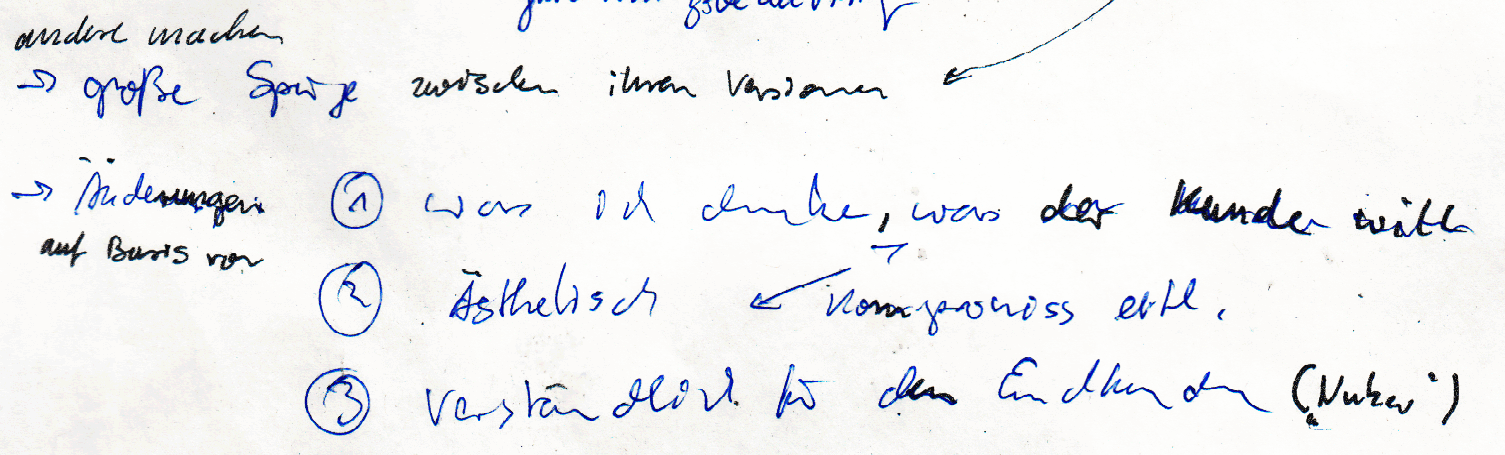 andere machen
→ große Sprünge zwischen ihren Versionen ←
→ Änderungen ① was ich denke, was der Kunde will
auf Basis von
② Ästhetisch ← Kompromiss evtl.
③ Verständlich für den Endkunden („Nutzer“)